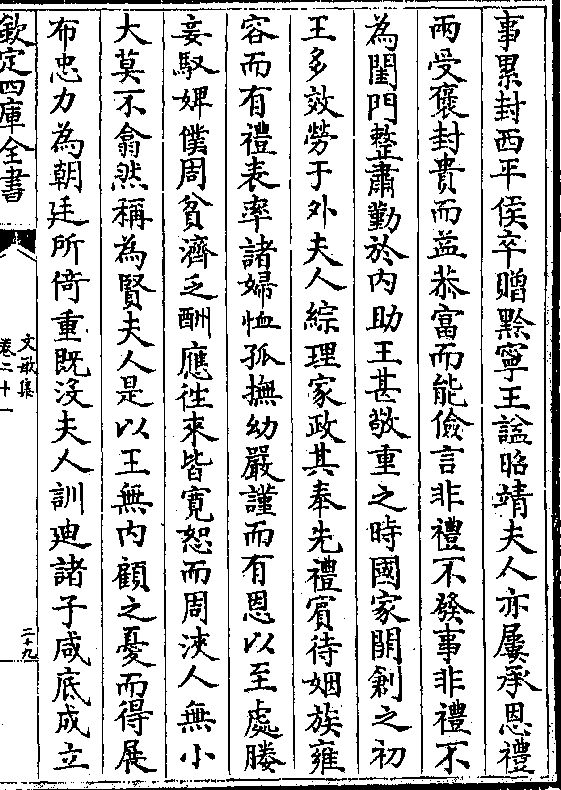 事累封西平侯卒贈黔寧王諡昭靖夫人亦屢承恩禮
兩受褒封貴而益恭富而能儉言非禮不發事非禮不
為閨門整肅勤於内助王甚敬重之時國家開創之初
王多效勞于外夫人綜理家政其奉先禮賓待姻族雍
容而有禮表率諸婦恤孤撫幼嚴謹而有恩以至處媵
妾馭婢僕周貧濟乏酬應徃來皆寛恕而周浹人無小
大莫不翕然稱為賢夫人是以王無内顧之憂而得展
布忠力為朝廷所倚重既沒夫人訓廸諸子咸底成立
欽定四庫全書
文敏集
卷二十一
二十九